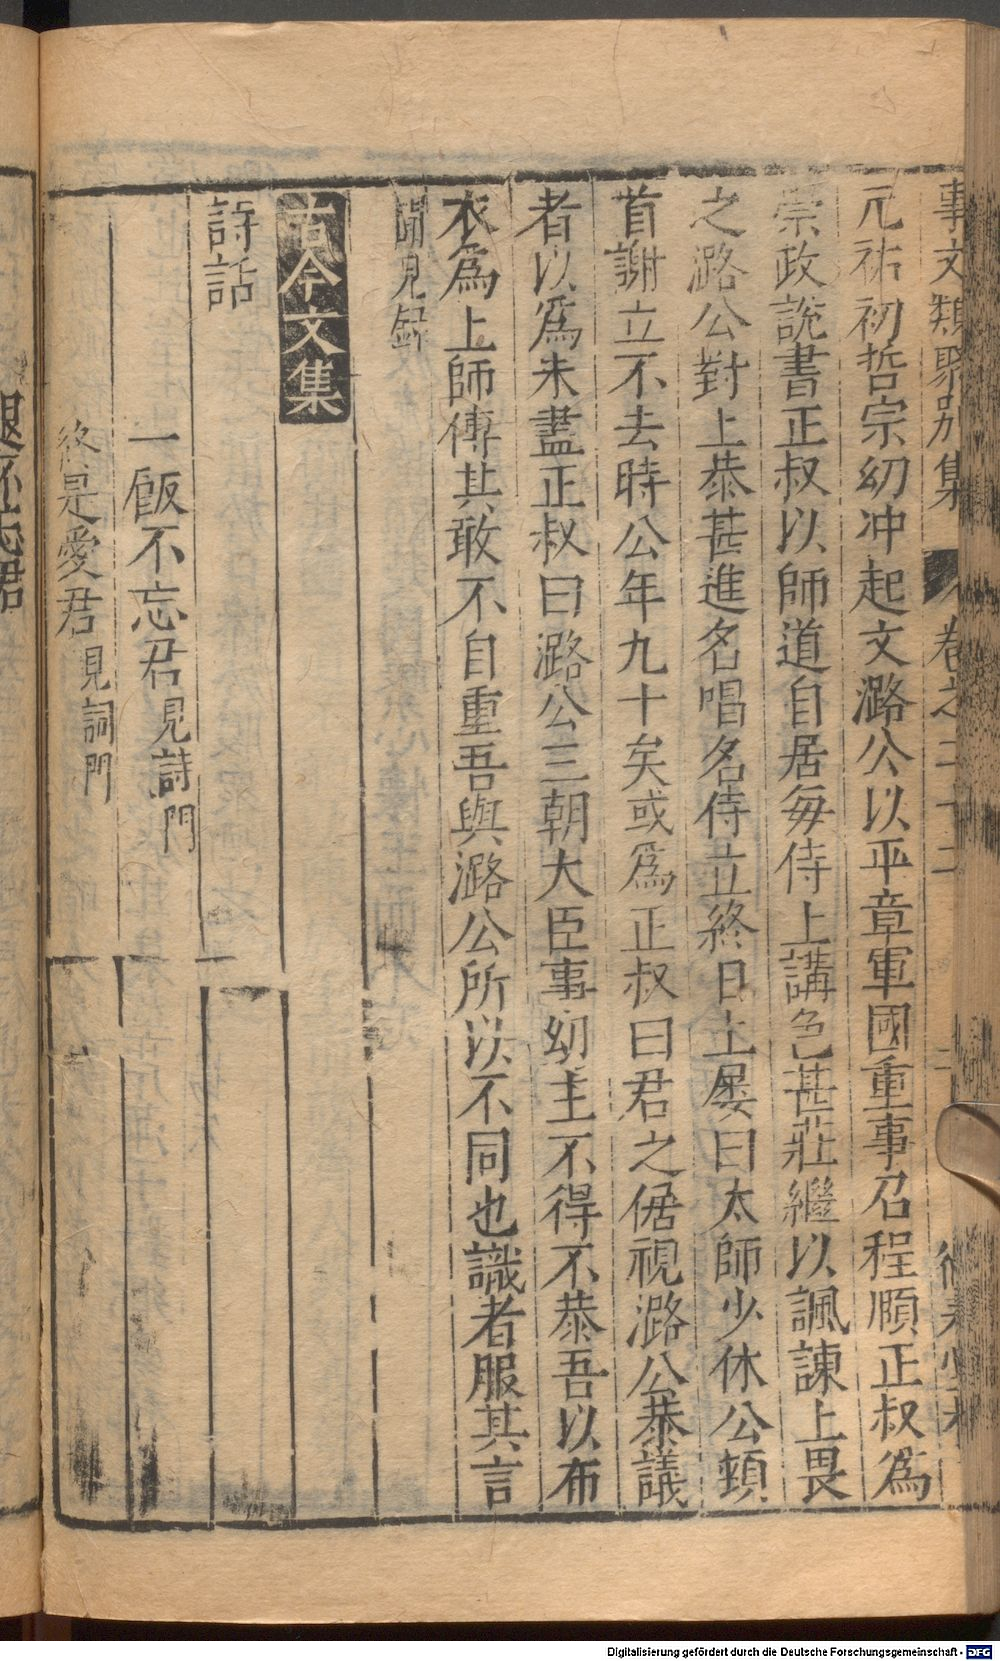 事文類聚别集 卷之二十二
元祐初哲宗幼冲起文潞公以平章軍國重事召程順正叔爲
崇政說書正叔以師道自居每侍上講色甚莊繼以諷諫上畏
之潞公對上恭甚進名唱名侍立終日上屡曰太師少休公頓
首謝立不去時公年九十矣或爲正叔曰君之倨視潞公恭議
者以爲未盡正叔曰潞公三朝大臣事幼主不得不恭吾以布
衣爲上師傅其敢不自重吾與潞公所以不同也識者服其言
聞見録
古今文集
詩話
一飯不忘君見詩門
終是愛君見詞門
Digitalisierung gefördert durch die Deutsche Forschungsgemeinschaft - DFG